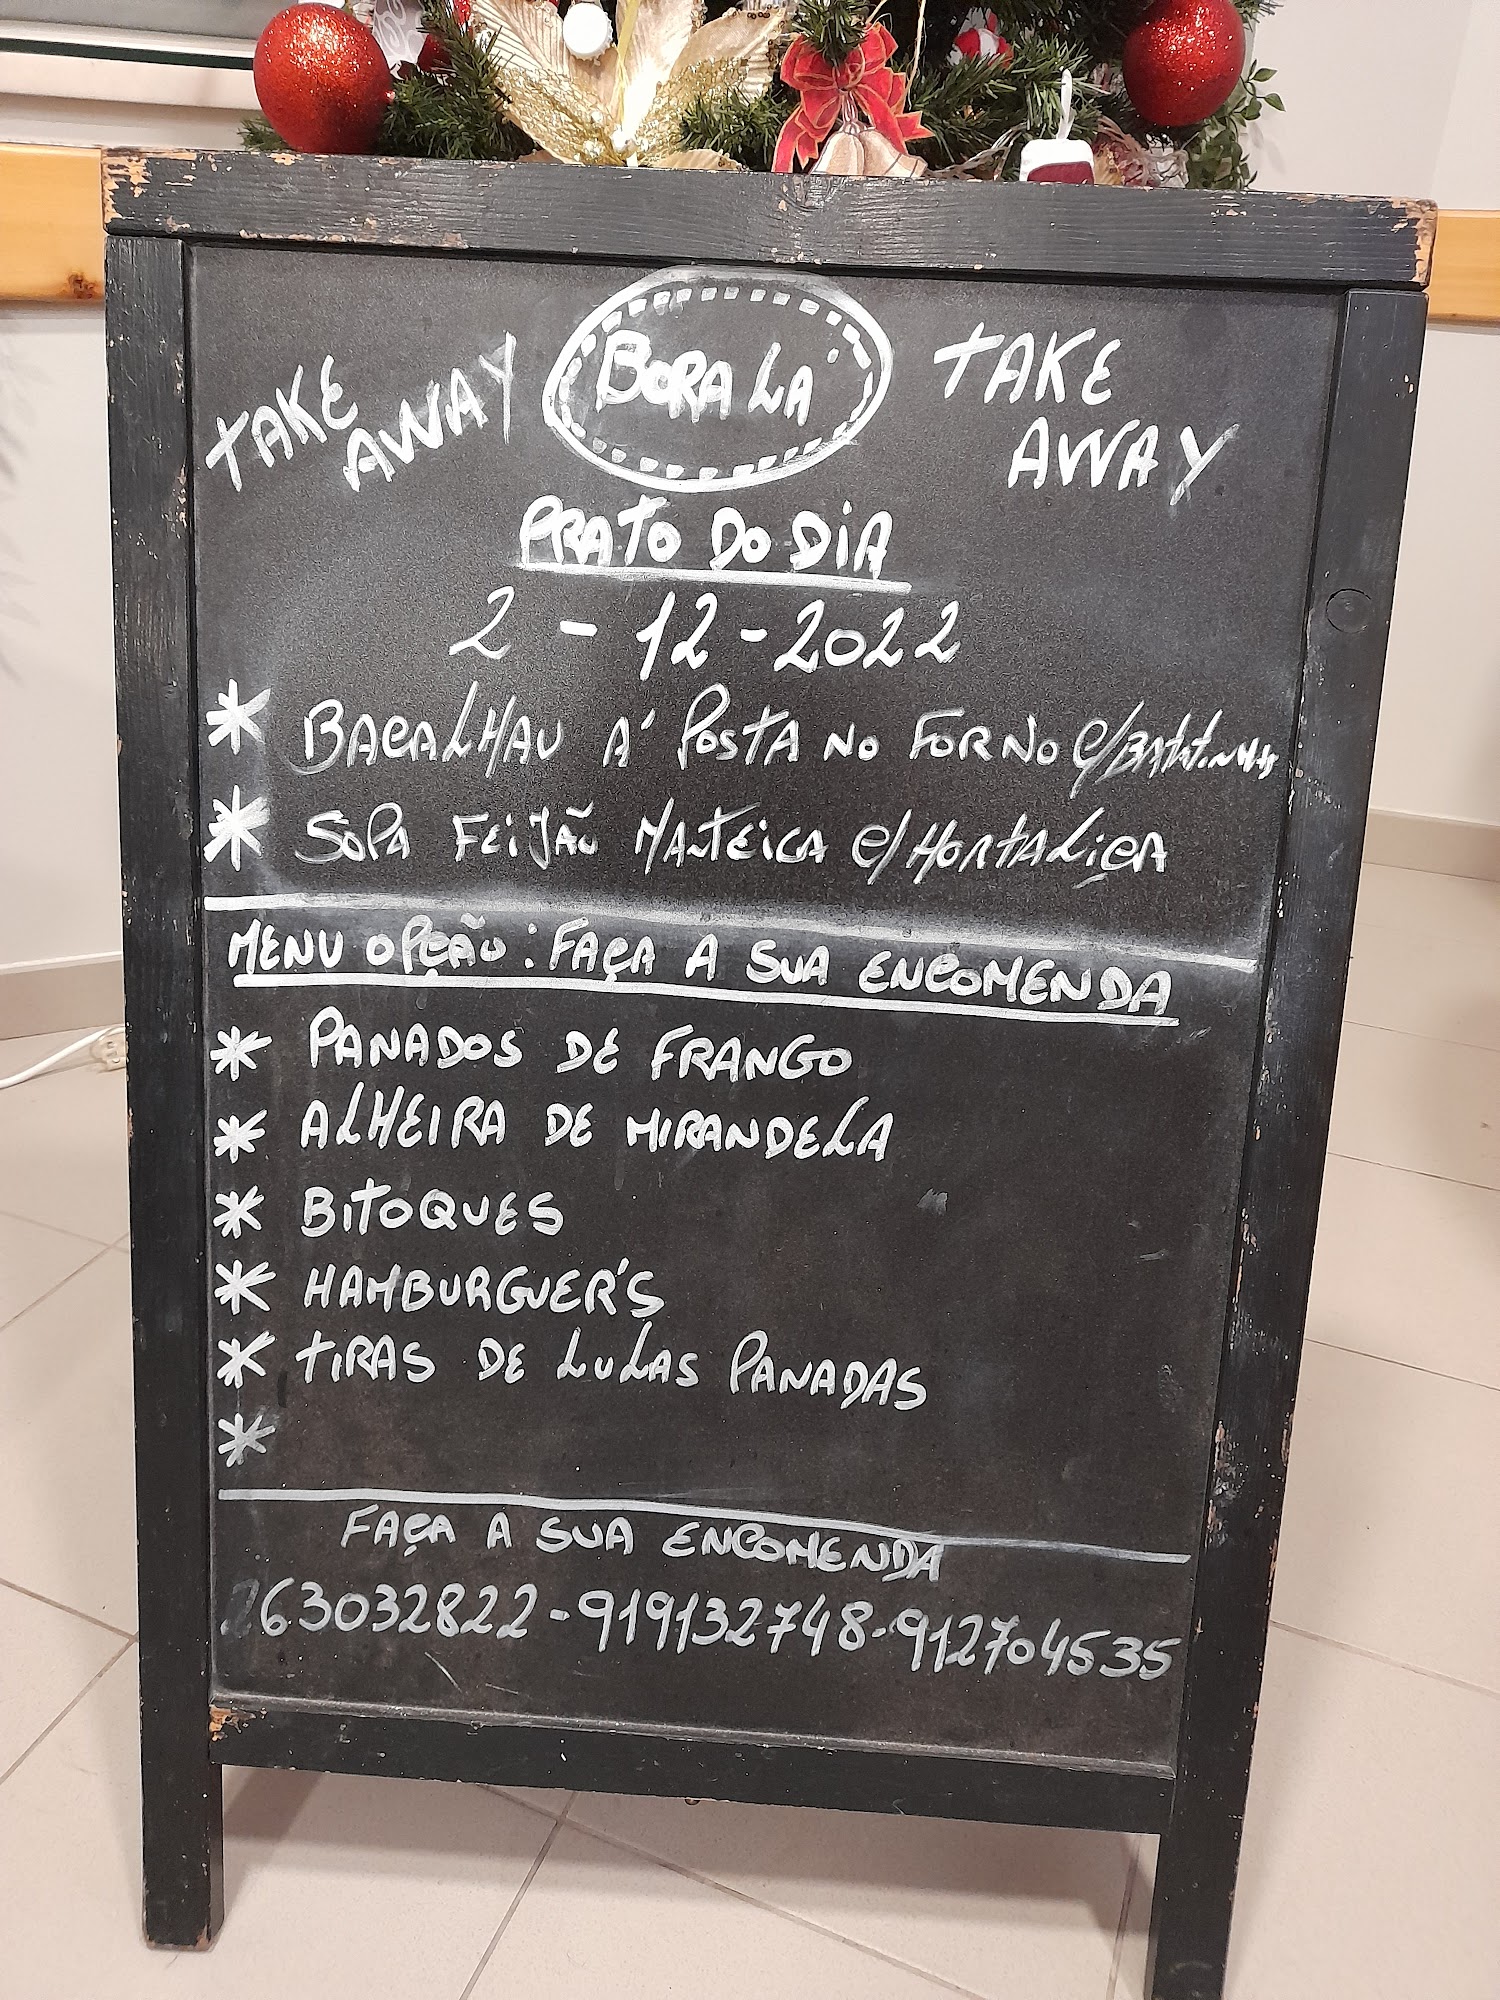 TAKE AWAY
BORA LÁ
TAKE AWAY
PRATO DO DIA
2 - 12 - 2022
* BACALHAU Á POSTA NO FORNO C/BATATINHAS
* SOPA FEIJÃO MANTEIGA C/HORTALIÇA
MENU OPÇÃO: FAÇA A SUA ENCOMENDA
* PANADOS DE FRANGO
* ALHEIRA DE MIRANDELA
* BITOQUES
* HAMBURGUER'S
* TIRAS DE LULAS PANADAS
*
FAÇA A SUA ENCOMENDA
263032822-919132748-912704535